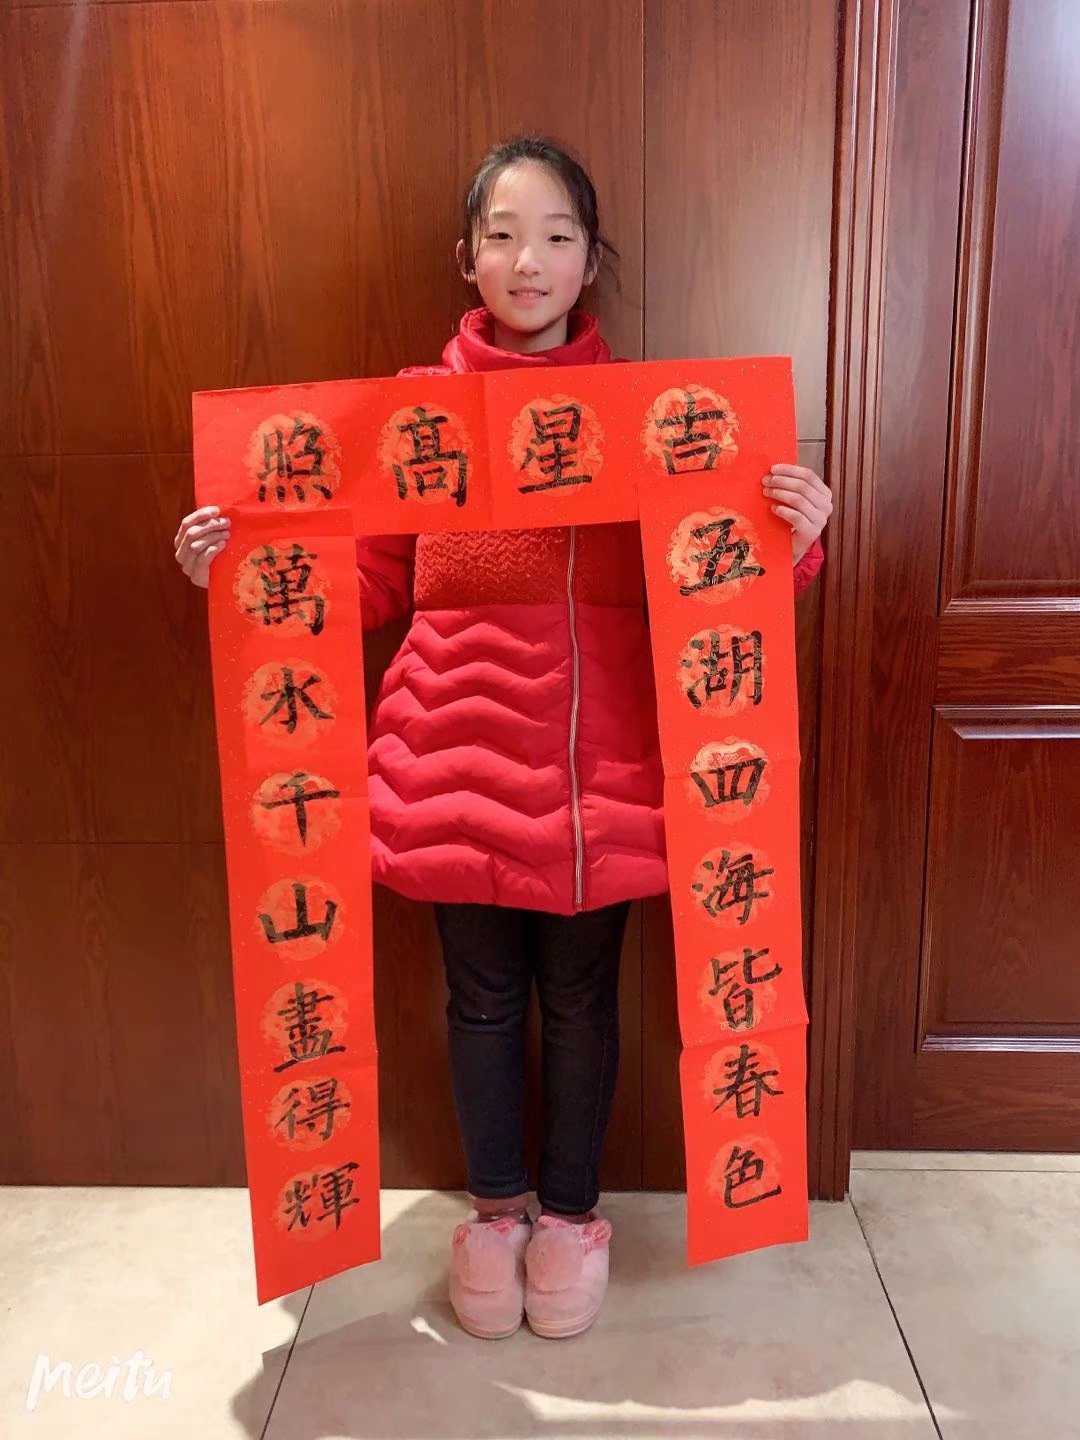 吉星髙照
五湖四海皆春色
萬水千山盡得輝
Meitu